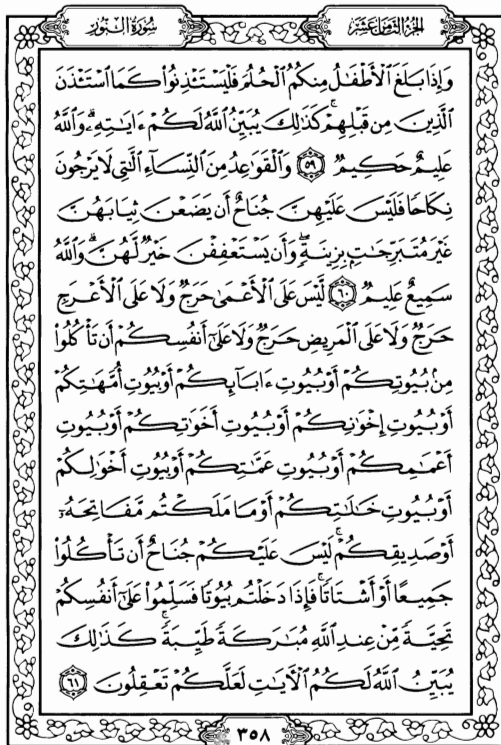 سورة النور
الجزء الثامن عشر
وَإِذَا بَلَغَ ٱلْأَطْفَٰلُ مِنكُمُ ٱلْحُلُمَ فَلْيَسْتَـْٔذِنُوا۟ كَمَا ٱسْتَـْٔذَنَ
ٱلَّذِينَ مِن قَبْلِهِمْ ۚ كَذَٰلِكَ يُبَيِّنُ ٱللَّهُ لَكُمْ ءَايَٰتِهِۦ ۗ وَٱللَّهُ
عَلِيمٌ حَكِيمٌ ٥٩ وَٱلْقَوَٰعِدُ مِنَ ٱلنِّسَآءِ ٱلَّٰتِى لَا يَرْجُونَ
نِكَاحًا فَلَيْسَ عَلَيْهِنَّ جُنَاحٌ أَن يَضَعْنَ ثِيَابَهُنَّ
غَيْرَ مُتَبَرِّجَٰتٍۭ بِزِينَةٍ ۖ وَأَن يَسْتَعْفِفْنَ خَيْرٌ لَّهُنَّ ۗ وَٱللَّهُ
سَمِيعٌ عَلِيمٌ ٦٠ لَّيْسَ عَلَى ٱلْأَعْمَىٰ حَرَجٌ وَلَا عَلَى ٱلْأَعْرَجِ
حَرَجٌ وَلَا عَلَى ٱلْمَرِيضِ حَرَجٌ وَلَا عَلَىٰٓ أَنفُسِكُمْ أَن تَأْكُلُوا۟
مِنۢ بُيُوتِكُمْ أَوْ بُيُوتِ ءَابَآئِكُمْ أَوْ بُيُوتِ أُمَّهَٰتِكُمْ
أَوْ بُيُوتِ إِخْوَٰنِكُمْ أَوْ بُيُوتِ أَخَوَٰتِكُمْ أَوْ بُيُوتِ
أَعْمَٰمِكُمْ أَوْ بُيُوتِ عَمَّٰتِكُمْ أَوْ بُيُوتِ أَخْوَٰلِكُمْ
أَوْ بُيُوتِ خَٰلَٰتِكُمْ أَوْ مَا مَلَكْتُم مَّفَاتِحَهُۥٓ
أَوْ صَدِيقِكُمْ ۚ لَيْسَ عَلَيْكُمْ جُنَاحٌ أَن تَأْكُلُوا۟
جَمِيعًا أَوْ أَشْتَاتًا ۚ فَإِذَا دَخَلْتُم بُيُوتًا فَسَلِّمُوا۟ عَلَىٰٓ أَنفُسِكُمْ
تَحِيَّةً مِّنْ عِندِ ٱللَّهِ مُبَٰرَكَةً طَيِّبَةً ۚ كَذَٰلِكَ
يُبَيِّنُ ٱللَّهُ لَكُمُ ٱلْءَايَٰتِ لَعَلَّكُمْ تَعْقِلُونَ ٦١
٣٥٨